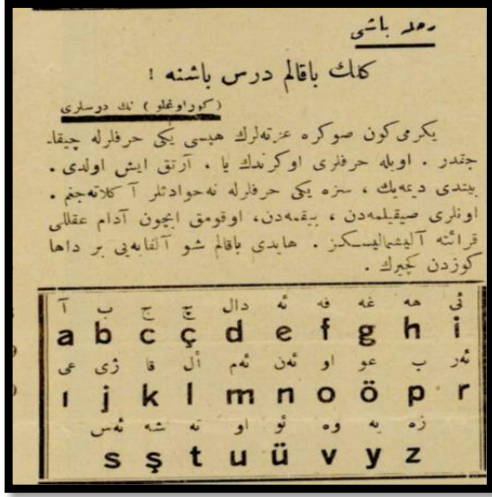 رحله باشی
كلك باقالم درس باشنه !
(كوراوغلو) نك درسلری
یكرمی كون صوكره غزتهلرك هپسی یكی حرفلرله چیقا-
جقدر . اویله حرفلری اوكرندك یا . آرتق ایش اولدی .
بیتدی دیمهیك ، سزه یكی حرفلرله نهحوادثلر آكلاتهجغم .
اونلری صیقیلمهدن ، بیقمهدن، اوقومق ایچون آدام عقللی
قرائته آلیشمالیسكز . هایدی باقالم شو آلفابهیی بر داها
كوزدن كچیرك .
آ ب ج چ دال ئه فه غه هه ئی
a b c ç d e f g h i
عی ژی قا أل ئهم ئهن او عو پ ئهر
ı j k l m n o ö p r
ئهس شه ته او ئو وه یه زه
s ş t u ü v y z